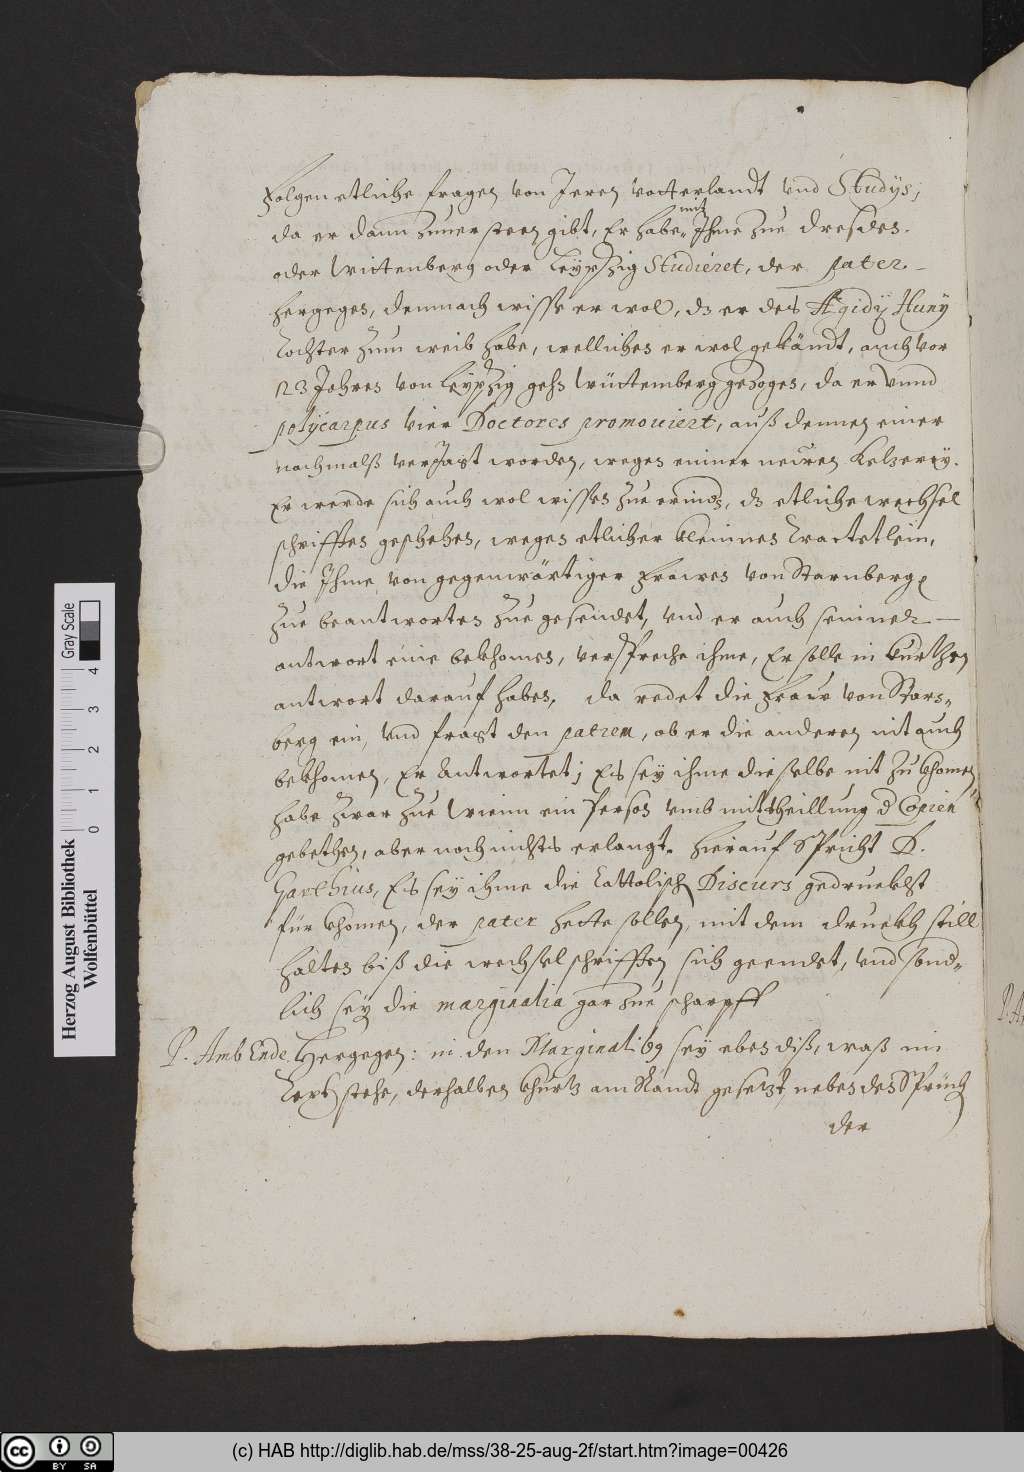 Folgen etliche fragen von Jeren vatterlandt vnd Studys;
da er dann zuuersteen gibt, Er habe mit Ihme zue dresden.
oder Wittenberg oder Leypzig Studieret, der pater.
hergegen, demnach wisse er wol, dz er des Ægidÿ Hunÿ
Tochter zum weib habe, welliches er wol gekändt, auch vor
23 Jahren von Leypzig gehn Württemberg gezogen, da er vnnd
polÿcarpus vier Doctores promouiert, auß dennen einer
nachmalß veriagt worden, wegen einner neuen Kelzereÿ.
Er werde sich auch wol wissen zue erindn, dz etliche wechsel
schrifften geschehen, wegen etlicher kleinnes Tractetlein,
die Ihme von gegenwärtiger Frawen von Starnberg
zue beantworten zue gesendet, vnd er auch seinner
antwort eine bekhomen, verspreche ihme, Er solle in kurtzen
antwort darauf haben, da redet die Fraw von Starn-
berg ein, vnd fragt den patrem, ob er die anderen nit auch
bekhomen, Er Antwortet; Es seÿ ihme dieselbe nit zu khomen
habe zwar zue Wienn ein Person vmb mittheillung d Copien
gebethen, aber noch nichts erlangt. Hierauf Spricht D.
Garthius, Es seÿ ihme die Cattolisch Discurs gedruckht
für khomen, der pater hette sollen, mit dem druckh still
halten biß die wechsel schrifften sich geendet, vnd sond-
lich seÿ die marginalia gar zue scharpff
P. Amb Ende Hergegen: in den Marginalibg seÿ eben diß, waß im
Text stehe, derhalben khurtz am Randt gesetzt, neben des Sprüch
der
Herzog August Bibliothek
Wolfenbüttel
0 1 2 3 4
Gray Scale
cc BY SA
(c) HAB http://diglib.hab.de/mss/38-25-aug-2f/start.htm?image=00426